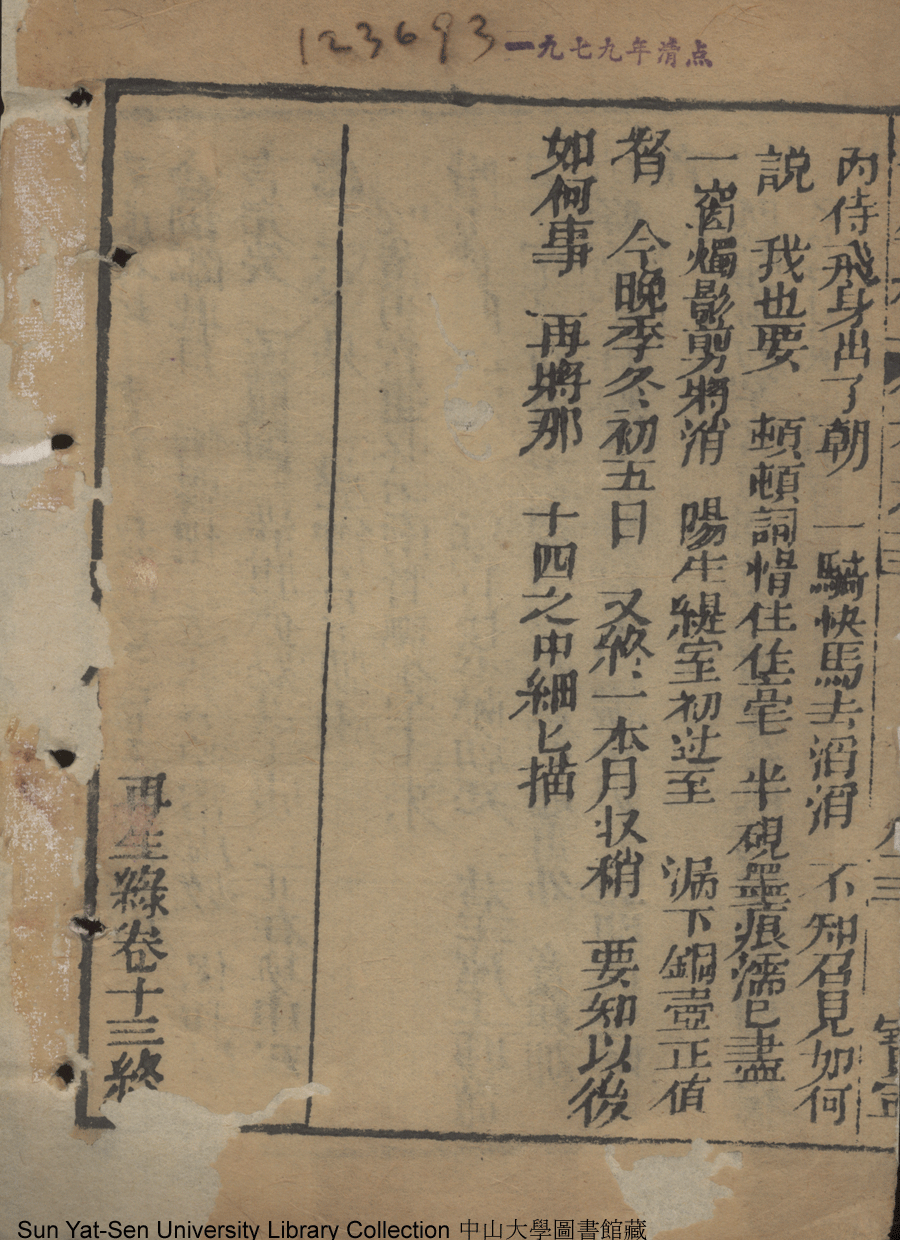 123693
一九七九年清点
內侍飛身出了朝　一騎快馬去滔滔　不知召見如何
説　我也要　頓頓詞情住筆毫　半硯墨痕濡已盡
一窗燭影剪將消　陽生緹室初过至　漏下銅壺正値
督　今晚季冬初五日　又終一本月収稍　要知以後
如何事　再將那　十四之中細匕描
再生縁卷十三終
Sun Yat-Sen University Library Collection 中山大學圖書館藏